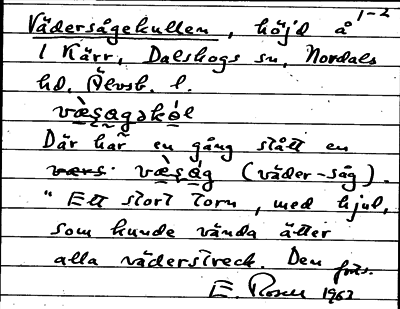 1-2
Vädersågekullen, höjd å
1 Kärr, Dalskogs sn, Nordals
hd. Älvsb. l.
væ̀ṣagskól
Där har en gång stått en
væ̀ṣág (väder-såg).
"Ett stort torn, med hjul,
som kunde vända åtter
alla väderstreck. Den
E. Rosell 1963